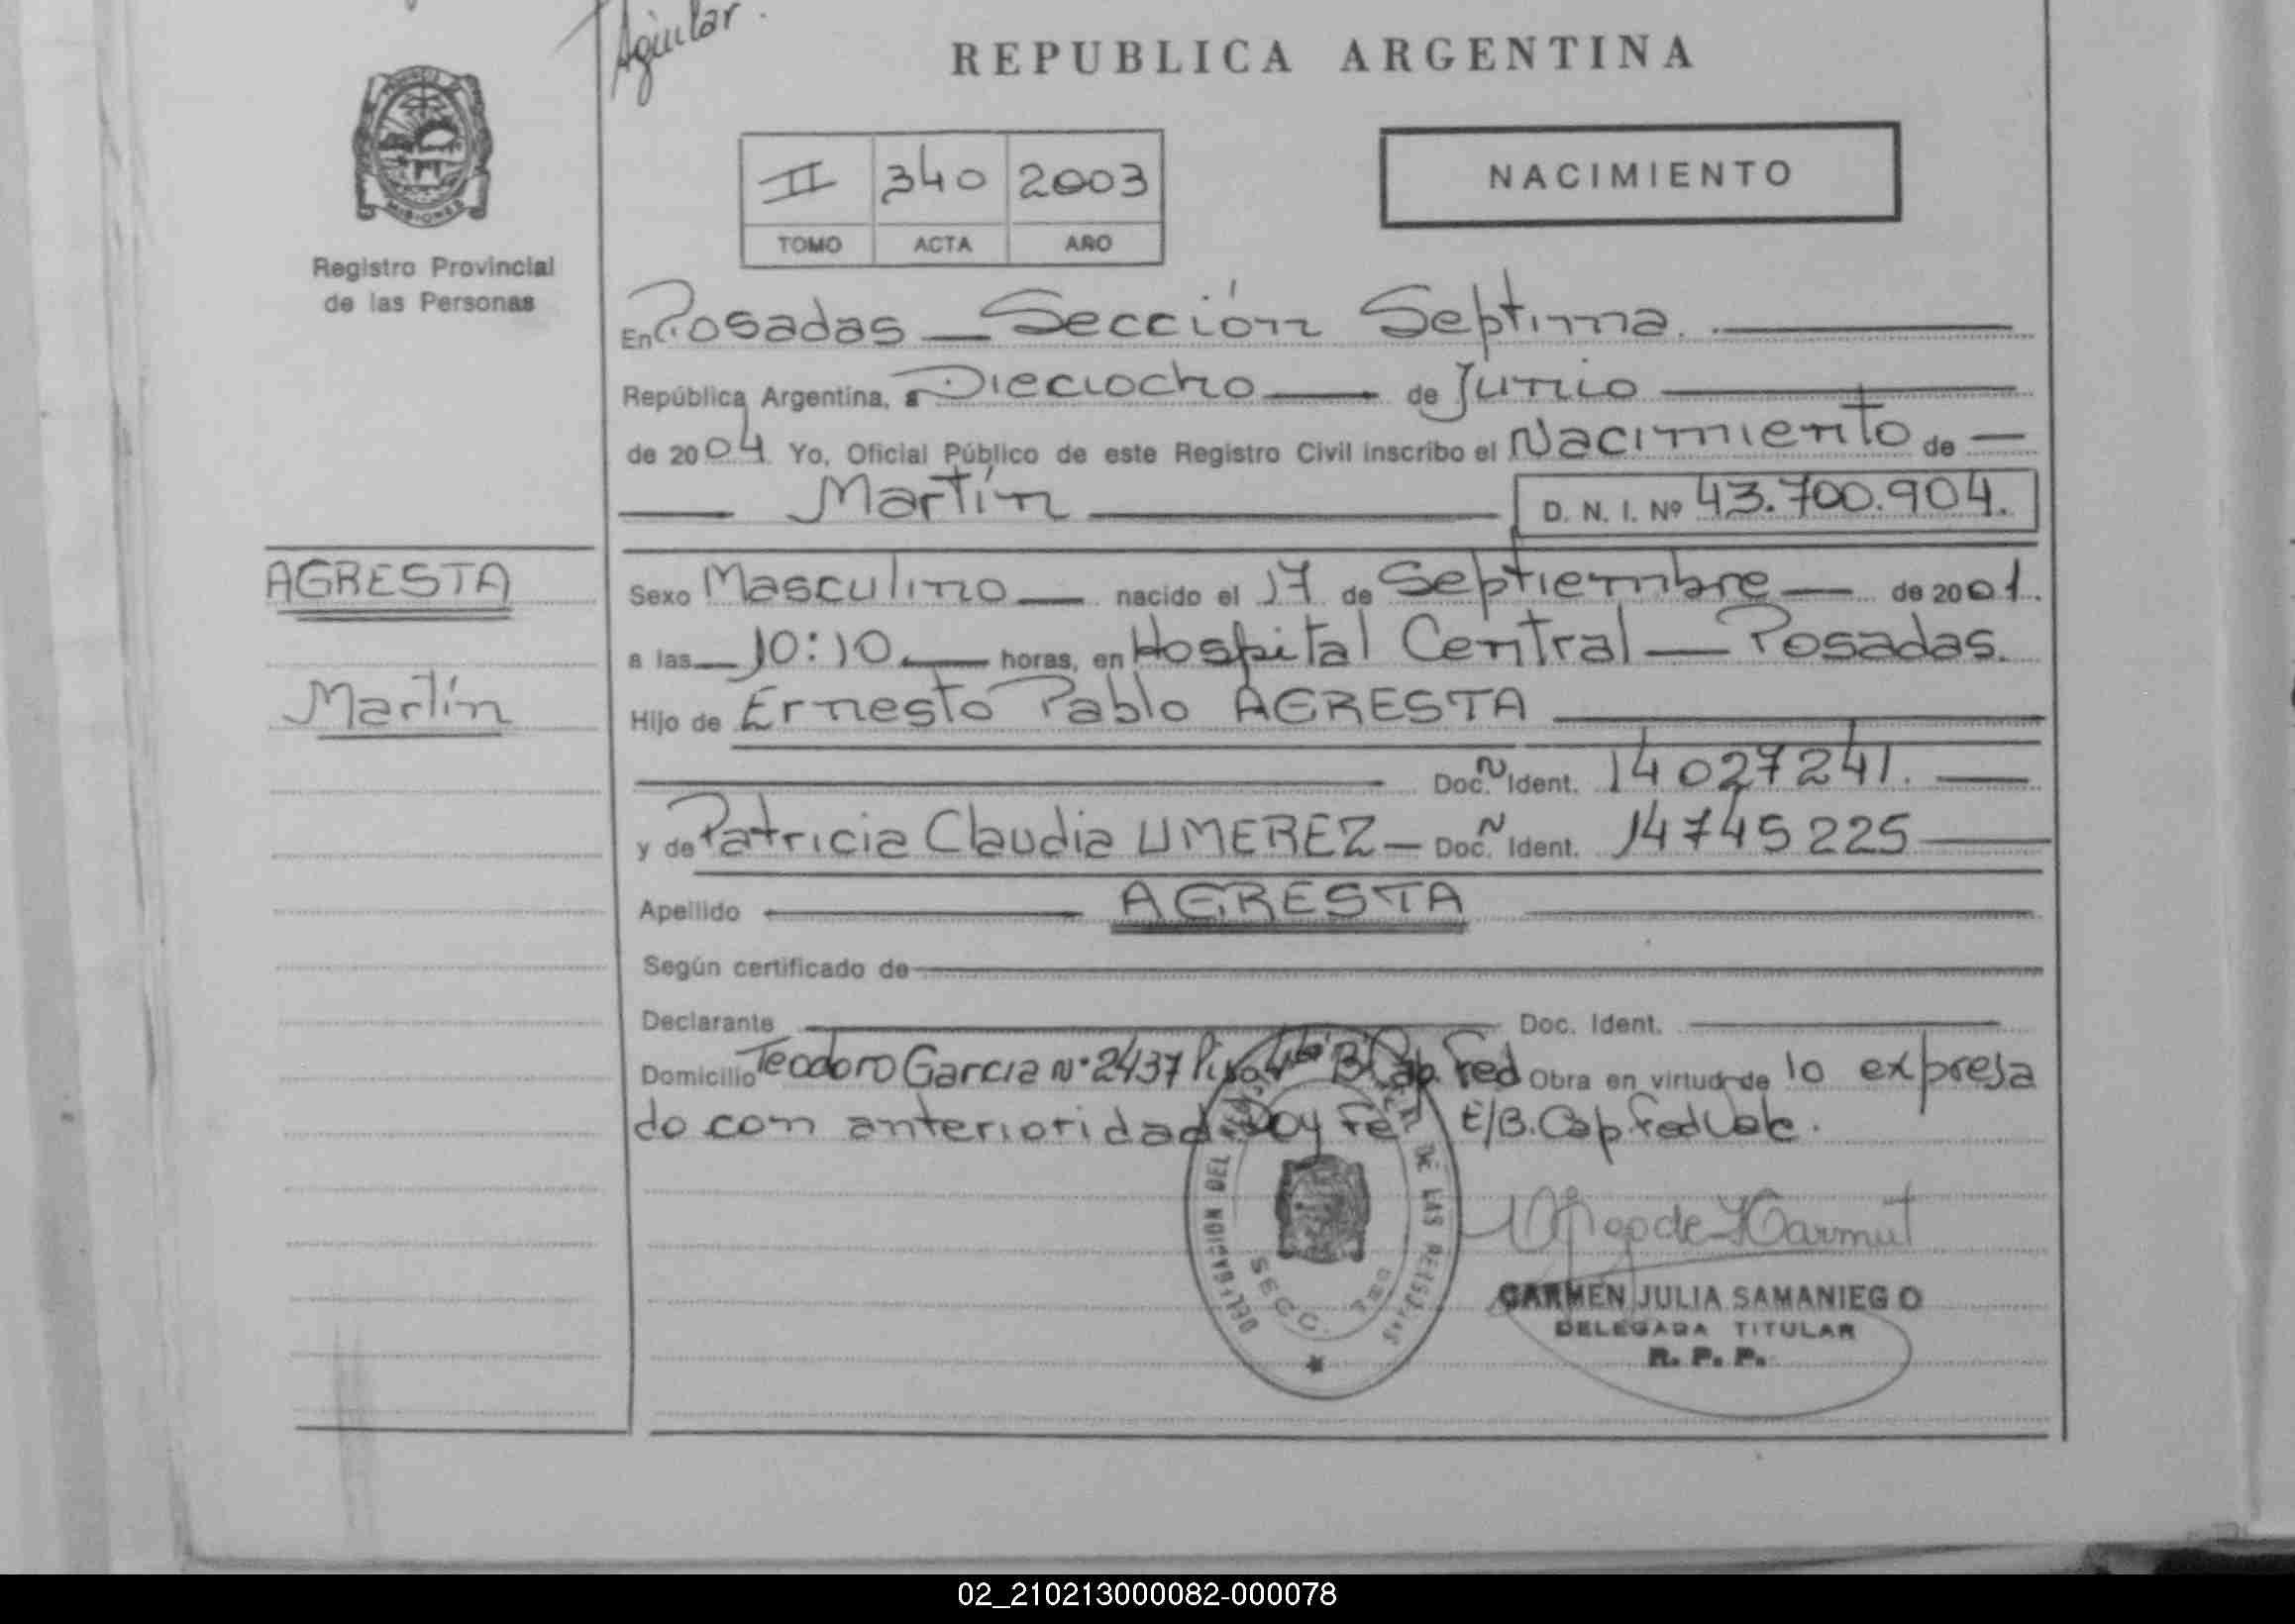 Aguilar.
REPUBLICA ARGENTINA
MISIONES
II 340 2003
NACIMIENTO
TOMO ACTA AÑO
Registro Provincial
de las Personas
En Posadas — Sección Septima.
República Argentina, a Dieciocho — de Junio
de 2004 Yo, Oficial Público de este Registro Civil inscribo el Nacimiento de —
— Martín — D. N. I. Nº 43.700.904.
AGRESTA
Martín
Sexo Masculino — nacido el 17 de Septiembre — de 2001.
a las — 10:10 — horas, en Hospital Central — Posadas.
Hijo de Ernesto Pablo AGRESTA
Doc. N Ident. 14027241. —
y de Patricia Claudia UMEREZ — Doc. N Ident. 14745225
Apellido — AGRESTA
Según certificado de
Declarante Doc. Ident.
Domicilio Teodoro Garcia Nº 2437 Piso 4to B Cap. Fed Obra en virtud de lo expresa
do con anterioridad. Doy Fe E/B. Cap Fed Vale.
DELEGACION DEL DE LAS PERSONAS
SECC. 7ma
CARMEN JULIA SAMANIEGO
DELEGADA TITULAR
R. P. P.
02_210213000082-000078